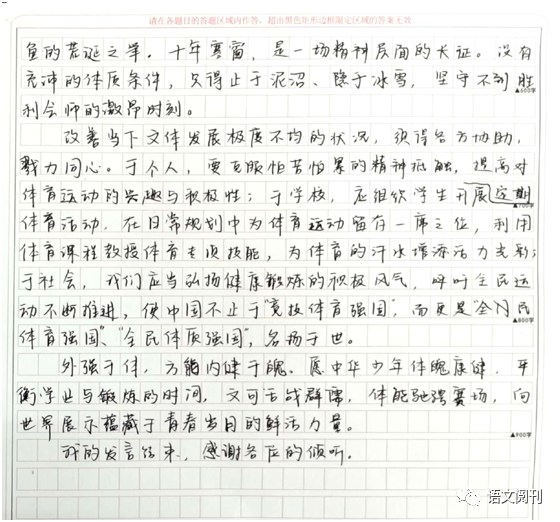 请在各题目的答题区域内作答，超出黑色矩形边框限定区域的答案无效
鱼的荒诞之举。十年寒窗，是一场精神层面的长征。没有
充沛的体质条件，只得止于泥沼、隐于冰雪，坚守不到胜
▲600字
利会师的激昂时刻。
改善当下文体发展极度不均的状况，须得各方协助，
戮力同心。于个人，要克服怕苦怕累的精神抵触，提高对
体育运动的兴趣与积极性；于学校，应组织学生开展定期
▲700字
体育活动，在日常规划中为体育运动留有一席之位，利用
体育课程教授体育专项技能，为体育的汗水增添活力光彩；
于社会，我们应当弘扬健康锻炼的积极风气，呼吁全民运
动不断推进，使中国不止于“竞技体育强国”，而更是“全民
▲800字
体育强国”、“全民体质强国”，名扬于世。
外强于体，方能内健于魄。愿中华少年体魄康健，平
衡学业与锻炼的时间，文可舌战群儒，体能驰骋赛场，向
世界展示蕴藏于青春岁月的鲜活力量。
▲900字
我的发言结束，感谢各位的倾听。
语文阅刊